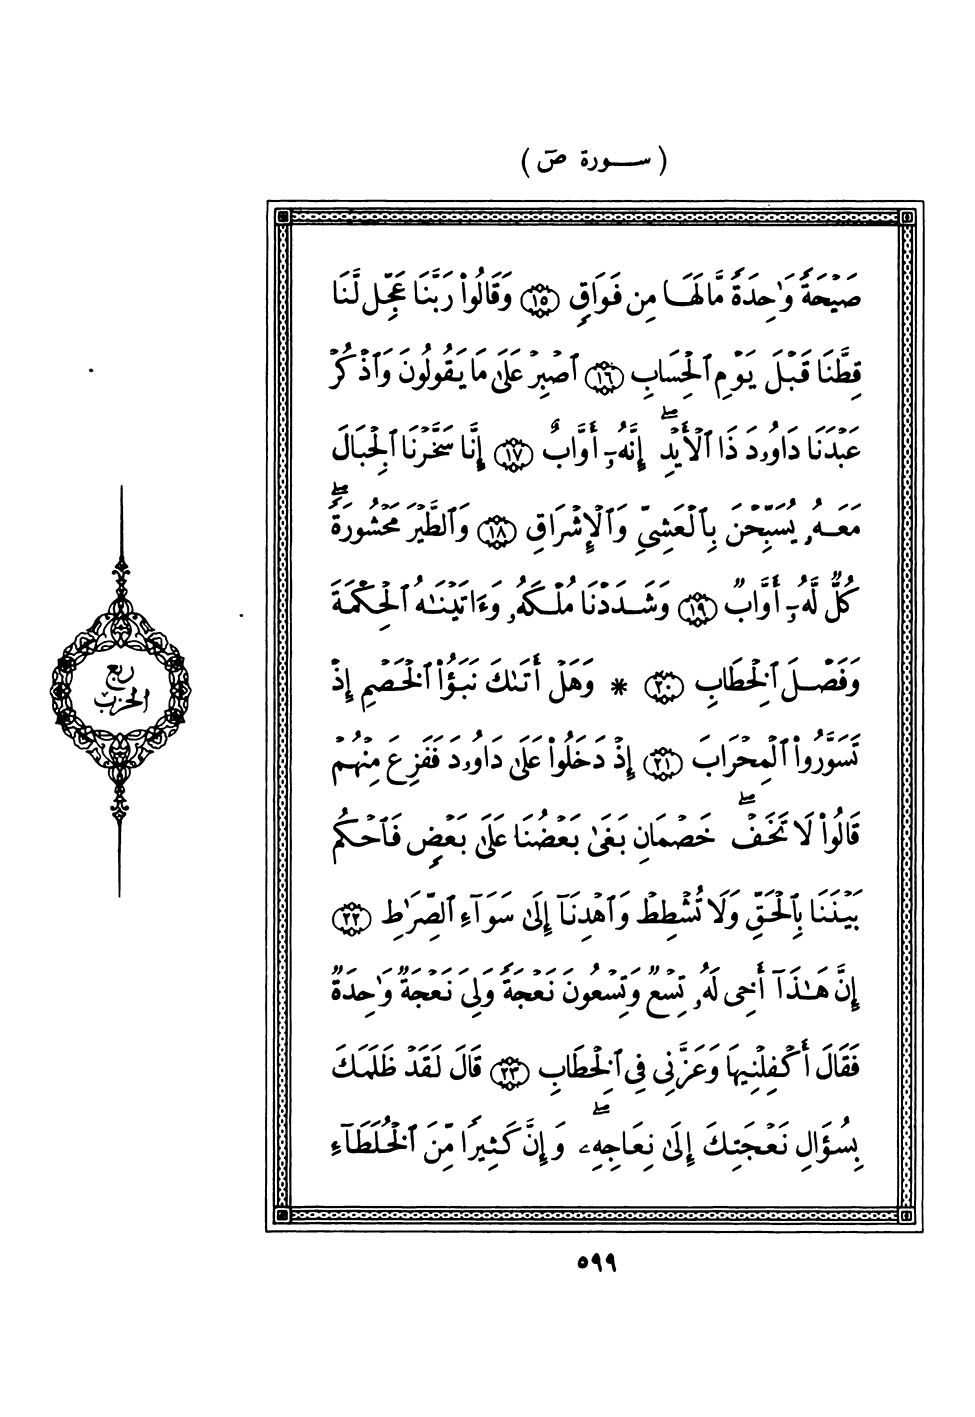 ( سـورة ص )
صَيْحَةً وَٰحِدَةً مَّا لَهَا مِن فَوَاقٍ ١٥ وَقَالُوا۟ رَبَّنَا عَجِّل لَّنَا
قِطَّنَا قَبْلَ يَوْمِ ٱلْحِسَابِ ١٦ ٱصْبِرْ عَلَىٰ مَا يَقُولُونَ وَٱذْكُرْ
عَبْدَنَا دَاوُۥدَ ذَا ٱلْأَيْدِ ۖ إِنَّهُۥٓ أَوَّابٌ ١٧ إِنَّا سَخَّرْنَا ٱلْجِبَالَ
مَعَهُۥ يُسَبِّحْنَ بِٱلْعَشِىِّ وَٱلْإِشْرَاقِ ١٨ وَٱلطَّيْرَ مَحْشُورَةً ۖ
كُلٌّ لَّهُۥٓ أَوَّابٌ ١٩ وَشَدَدْنَا مُلْكَهُۥ وَءَاتَيْنَٰهُ ٱلْحِكْمَةَ
وَفَصْلَ ٱلْخِطَابِ ٢٠ * وَهَلْ أَتَىٰكَ نَبَؤُا۟ ٱلْخَصْمِ إِذْ
تَسَوَّرُوا۟ ٱلْمِحْرَابَ ٢١ إِذْ دَخَلُوا۟ عَلَىٰ دَاوُۥدَ فَفَزِعَ مِنْهُمْ
قَالُوا۟ لَا تَخَفْ ۖ خَصْمَانِ بَغَىٰ بَعْضُنَا عَلَىٰ بَعْضٍ فَٱحْكُم
بَيْنَنَا بِٱلْحَقِّ وَلَا تُشْطِطْ وَٱهْدِنَآ إِلَىٰ سَوَآءِ ٱلصِّرَٰطِ ٢٢
إِنَّ هَٰذَآ أَخِى لَهُۥ تِسْعٌ وَتِسْعُونَ نَعْجَةً وَلِىَ نَعْجَةٌ وَٰحِدَةٌ
فَقَالَ أَكْفِلْنِيهَا وَعَزَّنِى فِى ٱلْخِطَابِ ٢٣ قَالَ لَقَدْ ظَلَمَكَ
بِسُؤَالِ نَعْجَتِكَ إِلَىٰ نِعَاجِهِۦ ۖ وَإِنَّ كَثِيرًا مِّنَ ٱلْخُلَطَآءِ
ربع
الحزب
٥٩٩